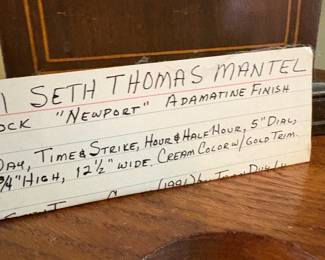 SETH THOMAS MANTEL
"NEWPORT" ADAMATINE FINISH
DAY, TIME & STRIKE, HOUR & HALF HOUR, 5" DIAL,
HIGH, 12 1/2" WIDE. CREAM COLOR W/ GOLD TRIM.
(1996) by